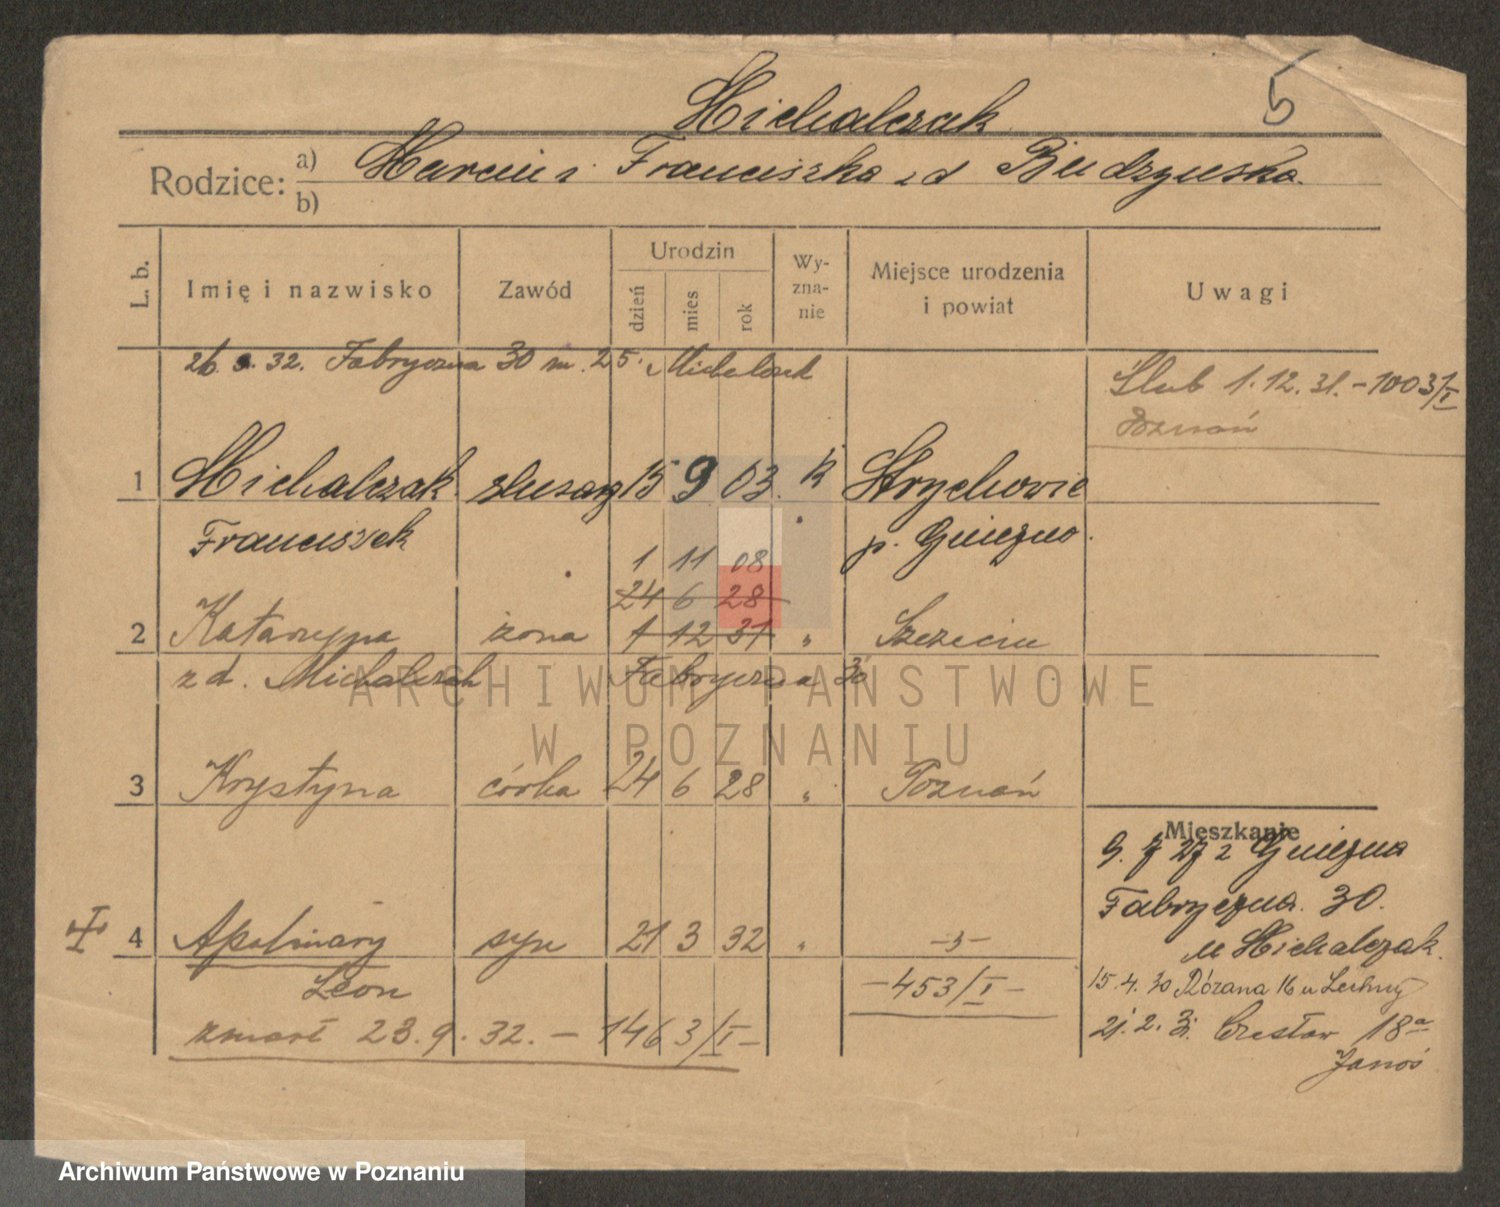 5
Michalczak
Rodzice: a) Marcin i Franciszka z d Budzyńska.
b)
L. b. Imię i nazwisko Zawód Urodzin dzień mies rok Wyznanie Miejsce urodzenia i powiat Uwagi
26. 9. 32. Fabryczna 30 m. 25. Michalczak
Ślub 1.12.31. – 1003/I
Poznań
1 Michalczak ślusarz 15 9 03. k Strychowie
Franciszek p. Gniezno.
1 11 08
24 6 28
2 Katarzyna żona 1 12 31 " Szczecin
z d. Michalczak Fabryczna 30
3 Krystyna córka 24 6 28 " Poznań
Mieszkanie
9. 7 27 z Gniezna
Fabryczna. 30.
u Michalczak.
4 Apolinary syn 21 3 32 " –„–
Leon –453/I–
15.4.30 Różana 16 u
21.2.31. Czesław 18a
Janoś
zmarł 23.9.32. – 1463/I–
ARCHIWUM PAŃSTWOWE
W POZNANIU
Archiwum Państwowe w Poznaniu